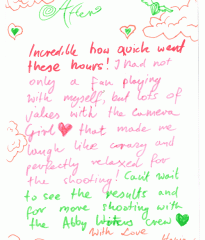 After
Incredible how quick went
these hours! I had not
only a fun playing
with myself, but lots of
jokes with the camera
Girl ♥ that made me
laugh like crazy and
perfectly relaxed for
the shooting! Can't wait
to see the results and
for more shooting with
the Abby crew ♥
With Love